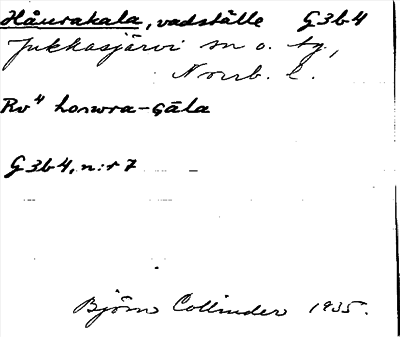 Håurakala, vadställe G3b4
Jukkasjärvi sn o. tg,
Norrb. l.
Rv⁴ horwra-gāla
G3b4, n:r 7
Björn Collinder 1935.